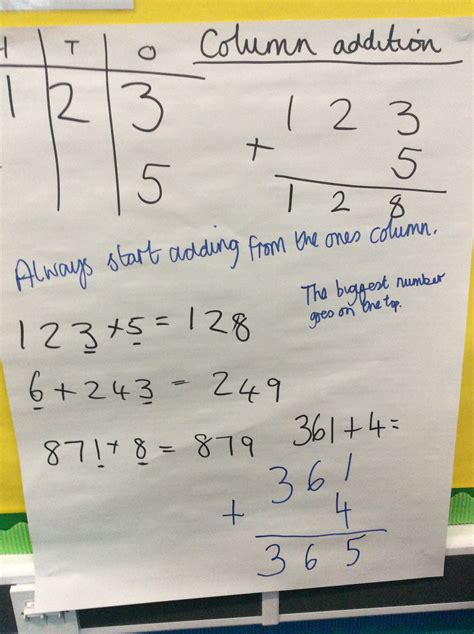 H T O Column addition
1 2 3
5
1 2 3
+ 5
1 2 8
Always start adding from the ones column.
The biggest number
goes on the top.
123+5=128
6+243=249
871+8=879
361+4=
361
+ 4
365